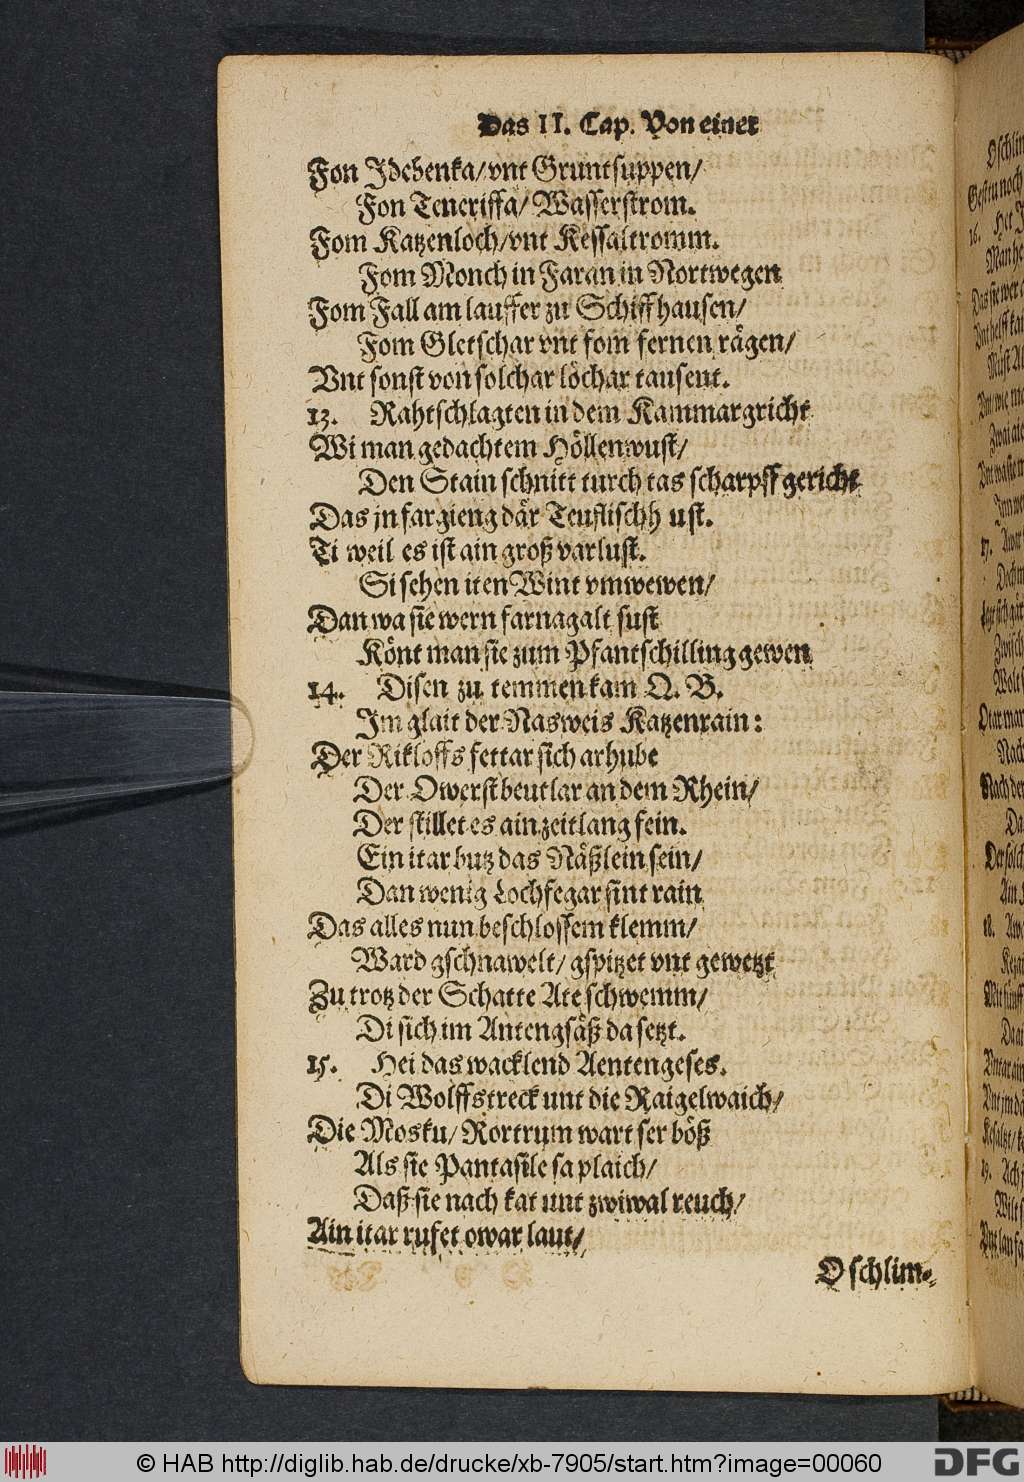 Das II. Cap. Von einer
Fon Idebenka/ vnt Gruntsuppen/
Fon Teneriffa/ Wasserstrom.
Fom Katzenloch/ vnt Kessaltromm.
Fom Monch in Faran in Nortwegen
Fom Fall am lauffer zu Schiffhausen/
Fom Gletschar vnt fom fernen rägen/
Vnt sonst von solchar löchar tausent.
13. Rahtschlagten in dem Kammargricht
Wi man gedachtem Höllenwust/
Den Stain schnitt turch tas scharpff gericht
Das jn fargieng där Teuflischh ust.
Ti weil es ist ain groß varlust.
Si sehen iten Wint vmwewen/
Dan wa sie wern farnagalt sust
Könt man sie zum Pfantschilling gewen
14. Disen zu temmen kam Q. B.
Im glait der Nasweis Katzenrain:
Der Rikloffs fettar sich arhube
Der Owerstbeutlar an dem Rhein/
Der stillet es ain zeitlang fein.
Ein itar butz das Näßlein sein/
Dan wenig Lochfegar sint rain
Das alles nun beschlossem klemm/
Ward gschnawelt/ gspitzet vnt gewetzt
Zu trotz der Schatte Ate schwemm/
Di sich im Antengsäß da setzt.
15. Hei das wacklend Aentengeses.
Di Wolffstreck unt die Raigelwaich/
Die Mosku/ Rortrum wart ser böß
Als sie Pantasile sa plaich/
Daß sie nach kat unt zwiwal reuch/
Ain itar rufet owar laut/
O schlim-
© HAB http://diglib.hab.de/drucke/xb-7905/start.htm?image=00060
DFG